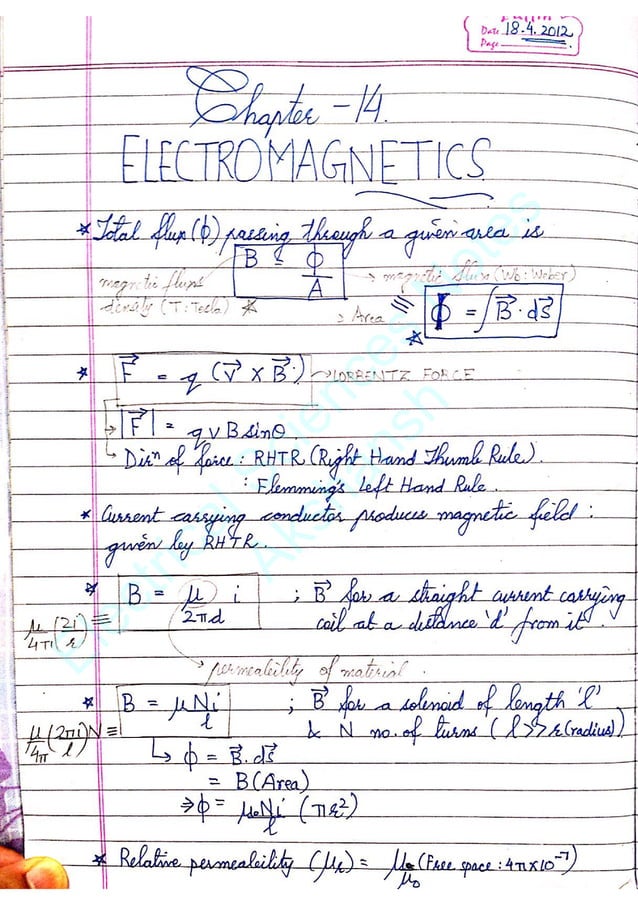 Date 18.4.2012
Page
Chapter - 14.
ELECTROMAGNETICS
* Total flux (ϕ) passing through a given area is
B = ϕ / A
magnetic fluxs density (T: Tesla)
magnetic flux (Wb: Weber)
Area
≡ ϕ = ∫ B⃗ · ds⃗
* F⃗ = q (v⃗ × B⃗) → LORRENTZ FORCE
|F⃗| = qvB sinθ.
Dirⁿ of force : RHTR (Right Hand Thumb Rule).
: Flemming's Left Hand Rule.
* Current carrying conductor produces magnetic field :
given by RHTR.
* B = μ i / 2πd ; B⃗ for a straight current carrying
coil at a distance 'd' from it.
μ/4π (2i/r) ≡
permeability of material.
* B = μNi / l ; B⃗ for a solenoid of length 'l'
& N no. of turns (l >> r (radius))
μ/4π (2πi/l) N ≡
ϕ = B⃗. ds⃗
= B (Area)
⇒ ϕ = μ₀Ni / l (πr²)
* Relative permeability (μr) = μ / μ₀ (Free space : 4π×10⁻⁷)
Electrical Sciences Notes
Akansh